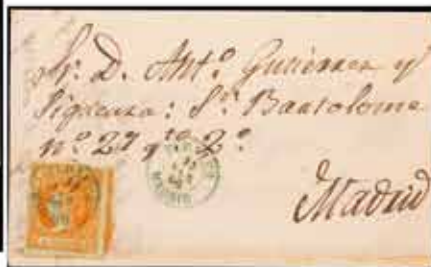 Sr. D. Antº Gutierrez y
Siguenza: Sn. Bartolome
nº 27 qto 2º
Madrid
MADRID